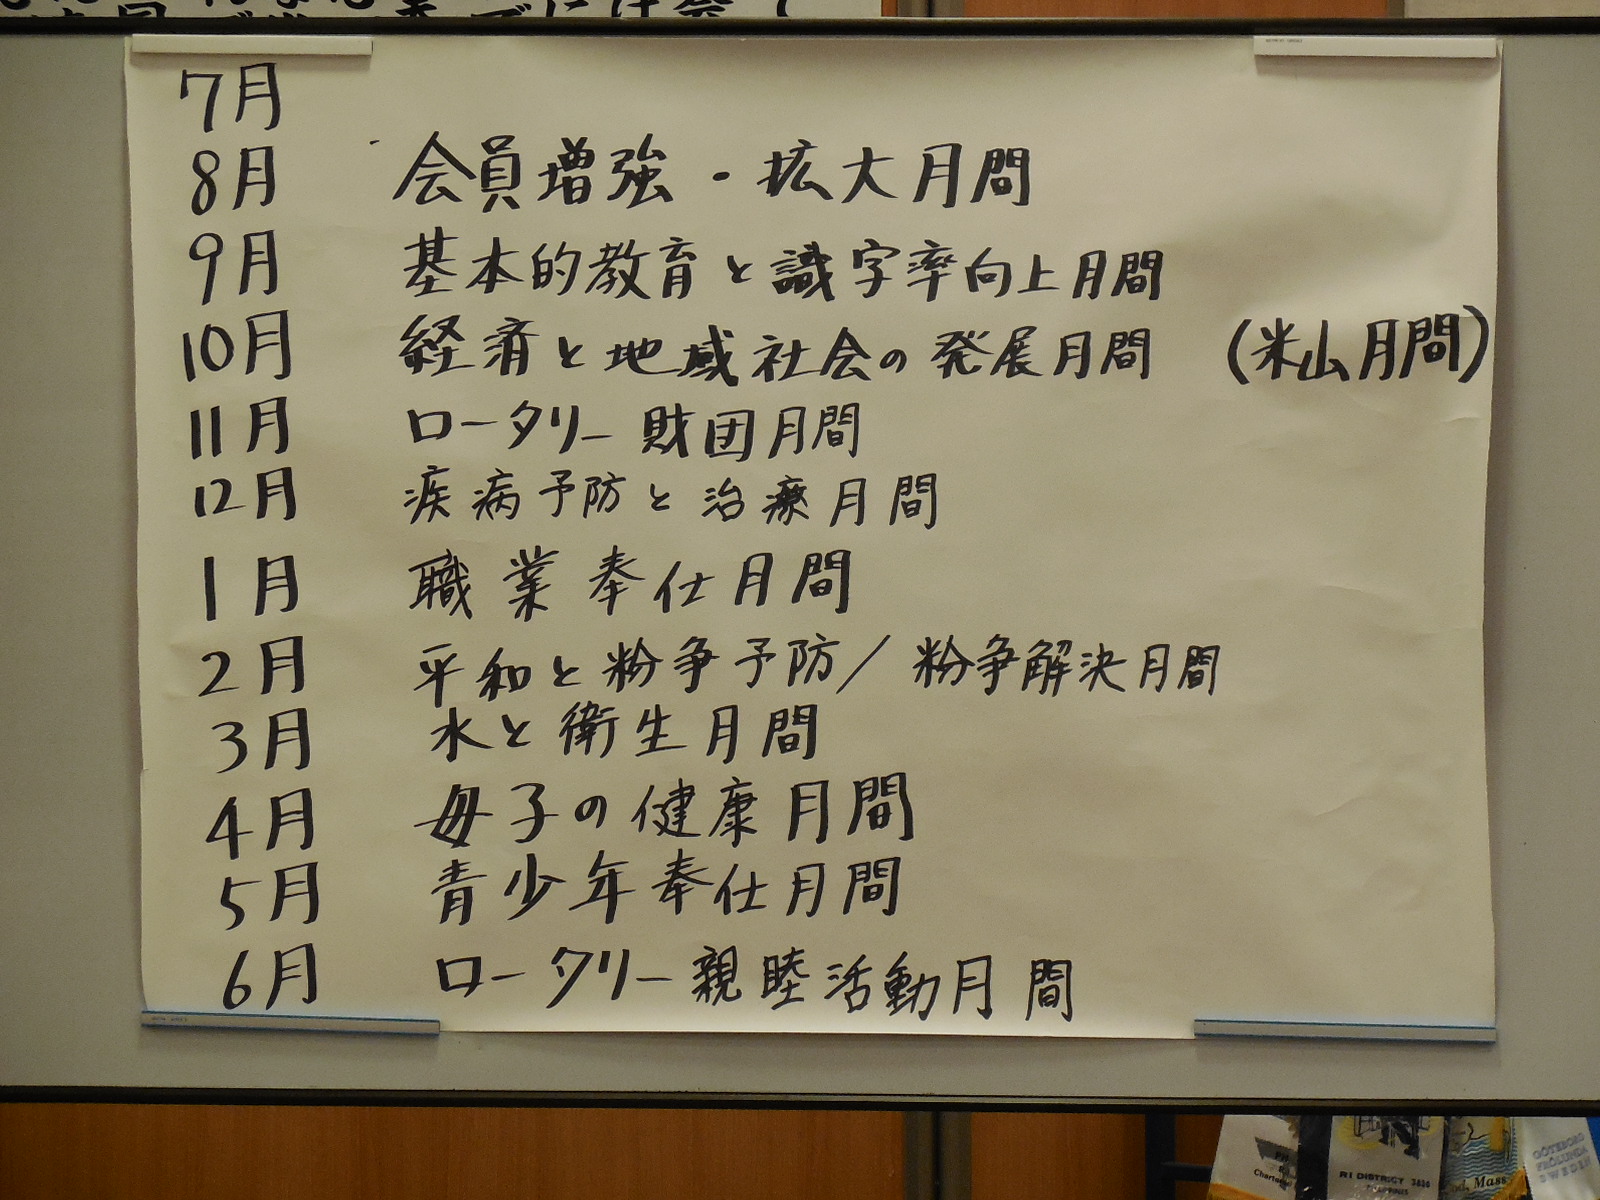 7月
8月 会員増強・拡大月間
9月 基本的教育と識字率向上月間
10月 経済と地域社会の発展月間 (米山月間)
11月 ロータリー財団月間
12月 疾病予防と治療月間
1月 職業奉仕月間
2月 平和と紛争予防/紛争解決月間
3月 水と衛生月間
4月 母子の健康月間
5月 青少年奉仕月間
6月 ロータリー親睦活動月間
RI DISTRICT 3830
PHILIPPINES
Mass.
GÖTEBORG
FRÖLUNDA
SWEDEN